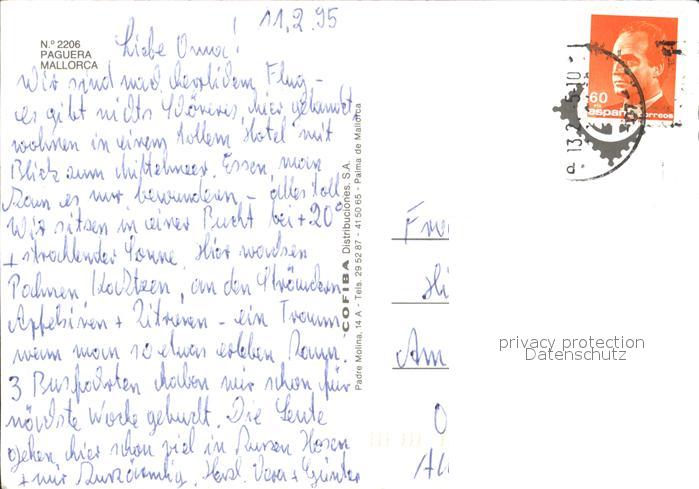 11.2.95
N.º 2206
PAGUERA
MALLORCA
Liebe Omma!
Wir sind nach herrlichem Flug –
es gibt nichts schöneres, hier gelandet,
wohnen in einem tollem Hotel mit
Blick zum Mittelmeer. Essen, man
kann es nur bewundern – alles toll
Wir sitzen in einer Bucht bei +20°
+ strahlender Sonne. Hier wachsen
Palmen, Kakteen, an den Sträuchern
Apfelsinen + Zitronen – ein Traum
wenn man so etwas erleben kann.
3 Busfahrten haben wir schon für
nächste Woche gebucht. Die Leute
gehen hier schon viel in kurzen Hosen
+ nur kurzärmlig. Herzl. Vera + Günter
COFIBA Distribuciones, S.A.
Padre Molina, 14 A - Tels. 29 52 87 - 41 50 65 - Palma de Mallorca
60
españa
correos
13.2
Am
privacy protection
Datenschutz